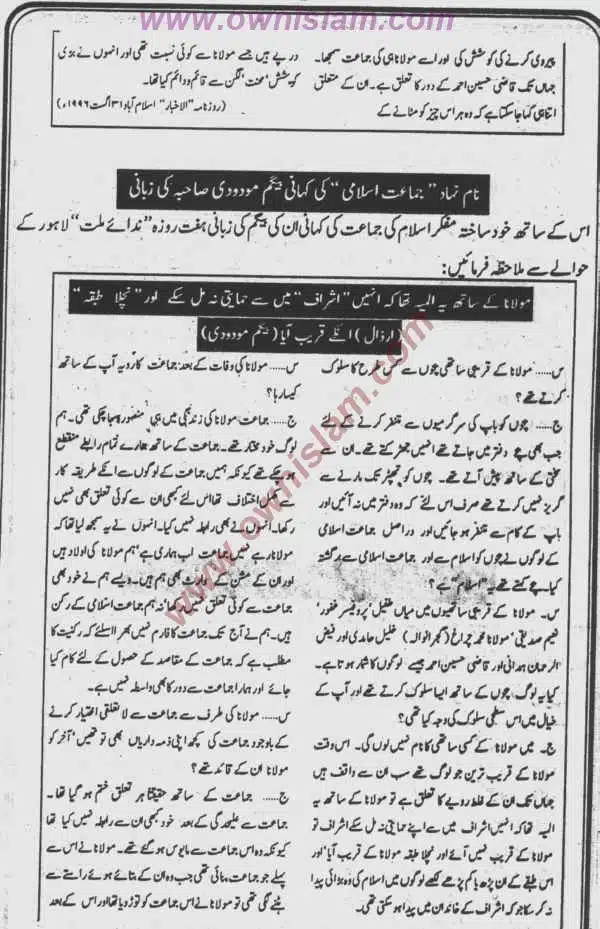 www.ownislam.com
پیروی کرنے کی کوشش کی اور اسے مولانا ہی کی جماعت سمجھا۔
جہاں تک قاضی حسین احمد کے دور کا تعلق ہے۔ ان کے متعلق
اتنا ہی کہا جا سکتا ہے کہ وہ ہر اس چیز کو مٹانے کے
درپے ہیں جسے مولانا سے کوئی نسبت تھی اور انہوں نے بڑی
کوشش، محنت، لگن سے قائم و دائم کیا تھا۔
(روزنامہ "الاخبار" اسلام آباد ۳۱ اگست ۱۹۹۶ء)
نام نہاد "جماعت اسلامی" کی کہانی بیگم مودودی صاحبہ کی زبانی
اس کے ساتھ خود ساختہ مفکر اسلام کی جماعت کی کہانی ان کی بیگم کی زبانی ہفت روزہ "ندائے ملت" لاہور کے
حوالے سے ملاحظہ فرمائیں:
مولانا کے ساتھ یہ المیہ تھا کہ انہیں "اشراف" میں سے حمایتی نہ مل سکے اور "نچلا طبقہ"
(ارذال) انکے قریب آیا (بیگم مودودی)
س..... مولانا کے قریبی ساتھی بچوں سے کس طرح کا سلوک
کرتے تھے؟
ج..... بچوں کو باپ کی سرگرمیوں سے متنفر کرنے کے لئے
جب بھی بچے دفتر میں جاتے تھے انہیں جھڑکتے تھے۔ ان سے
سختی کے ساتھ پیش آتے تھے۔ بچوں کو تھپڑ تک مارنے سے
گریز نہیں کرتے تھے صرف اس لئے کہ وہ دفتر میں نہ آئیں اور
باپ کے کام سے متنفر ہو جائیں اور دراصل جماعت اسلامی
کے لوگوں نے بچوں کو اسلام سے اور جماعت اسلامی سے برگشتہ
کیا۔ بچے کہتے تھے یہ "اسلام" ہے؟
س۔ مولانا کے قریبی ساتھیوں میں میاں طفیل، پروفیسر غفور،
نعیم صدیقی، مولانا محمد چراغ (گجرانوالہ) خلیل حامدی اور فیض
الرحمان ہمدانی اور قاضی حسین احمد جیسے لوگوں کا شمار ہوتا ہے۔
کیا یہ لوگ بچوں کے ساتھ ایسا سلوک کرتے تھے اور آپ کے
خیال میں اس سطحی سلوک کی وجہ کیا تھی؟
ج۔ میں مولانا کے کسی ساتھی کا نام نہیں لوں گی۔ اس وقت
کے قریب ترین جو لوگ تھے سب ان سے واقف ہیں
جہاں تک ان کے غلط رویے کا تعلق ہے تو مولانا کے ساتھ یہ
المیہ تھا کہ انہیں اشراف میں سے اپنے حمایتی نہ مل سکے اشراف تو
ان کے قریب نہیں آئے اور نچلا طبقہ مولانا کے قریب آیا اور
اس طبقے کے ان پڑھ یا کم پڑھے لکھے لوگوں میں اسلام کی وہ بڑائی پیدا
نہ کر سکا جو کہ اشراف کے خاندان میں پیدا ہو سکتی تھی۔
س..... مولانا کی وفات کے بعد جماعت کا رویہ آپ کے ساتھ
کیسا رہا؟
ج..... جماعت مولانا کی زندگی میں ہی منصورہ جا چکی تھی۔ ہم
لوگ خود مختار تھے۔ جماعت کے ساتھ ہمارے تمام رابطے منقطع
ہو چکے تھے کیونکہ ہمیں جماعت کے لوگوں سے انکے طریقہ کار
سے مکمل اختلاف تھا اس لئے کبھی ان سے کوئی تعلق بھی نہیں
رکھا۔ انہوں نے بھی رابطہ نہیں کیا۔ انہوں نے یہ سمجھ لیا تھا کہ
مولانا رہے نہیں جماعت اب ہماری ہے، ہم مولانا کی اولاد ہیں
اور ان کے مشن کے وارث بھی ہم ہیں۔ ویسے ہم نے خود بھی
جماعت سے کوئی تعلق نہیں رکھا، نہ ہم جماعت اسلامی کے رکن
ہیں۔ ہم نے آج تک جماعت کا فارم نہیں بھرا اسلئے کہ رکنیت کا
مطلب ہے کہ جماعت کے مقاصد کے حصول کے لئے کام کیا
جائے اور ہمارا جماعت سے دور کا بھی واسطہ نہیں ہے۔
س..... مولانا کی طرف سے جماعت سے لا تعلقی اختیار کرنے
کے باوجود جماعت کی کچھ اپنی ذمہ داریاں بھی تو تھیں، آخر کو
مولانا ان کے قائد تھے؟
ج..... جماعت کے ساتھ حقیقتاً ہر تعلق ختم ہو گیا تھا۔
جماعت سے علیحدگی کے بعد خود بھی ان سے رابطہ نہیں کیا تھا
کیونکہ وہ اس جماعت سے مایوس ہو گئے تھے۔ مولانا نے اس سے
پہلے جو جماعت بنائی تھی جب وہ ان کے بتائے ہوئے راستے سے
ہٹنے لگی تھی تو مولانا نے اس جماعت کو توڑ دیا تھا اور اس کے بعد
www.ownislam.com